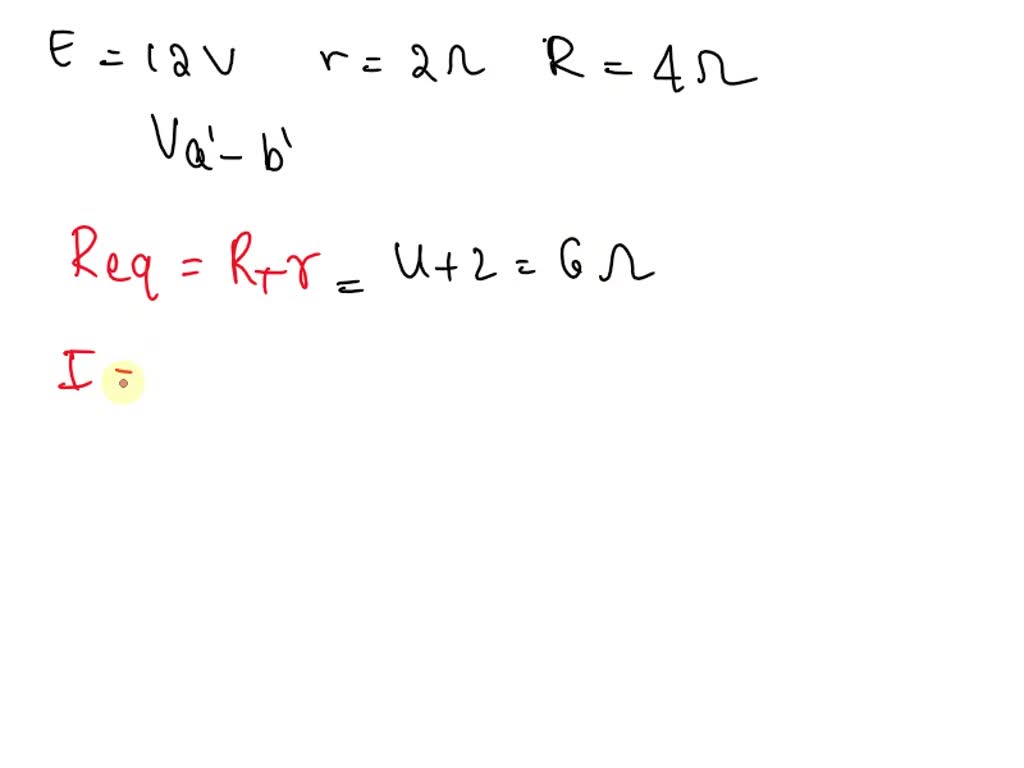 E = 12V r = 2Ω R = 4Ω
Va' - b'
Req = R+r = 4+2 = 6Ω
I =